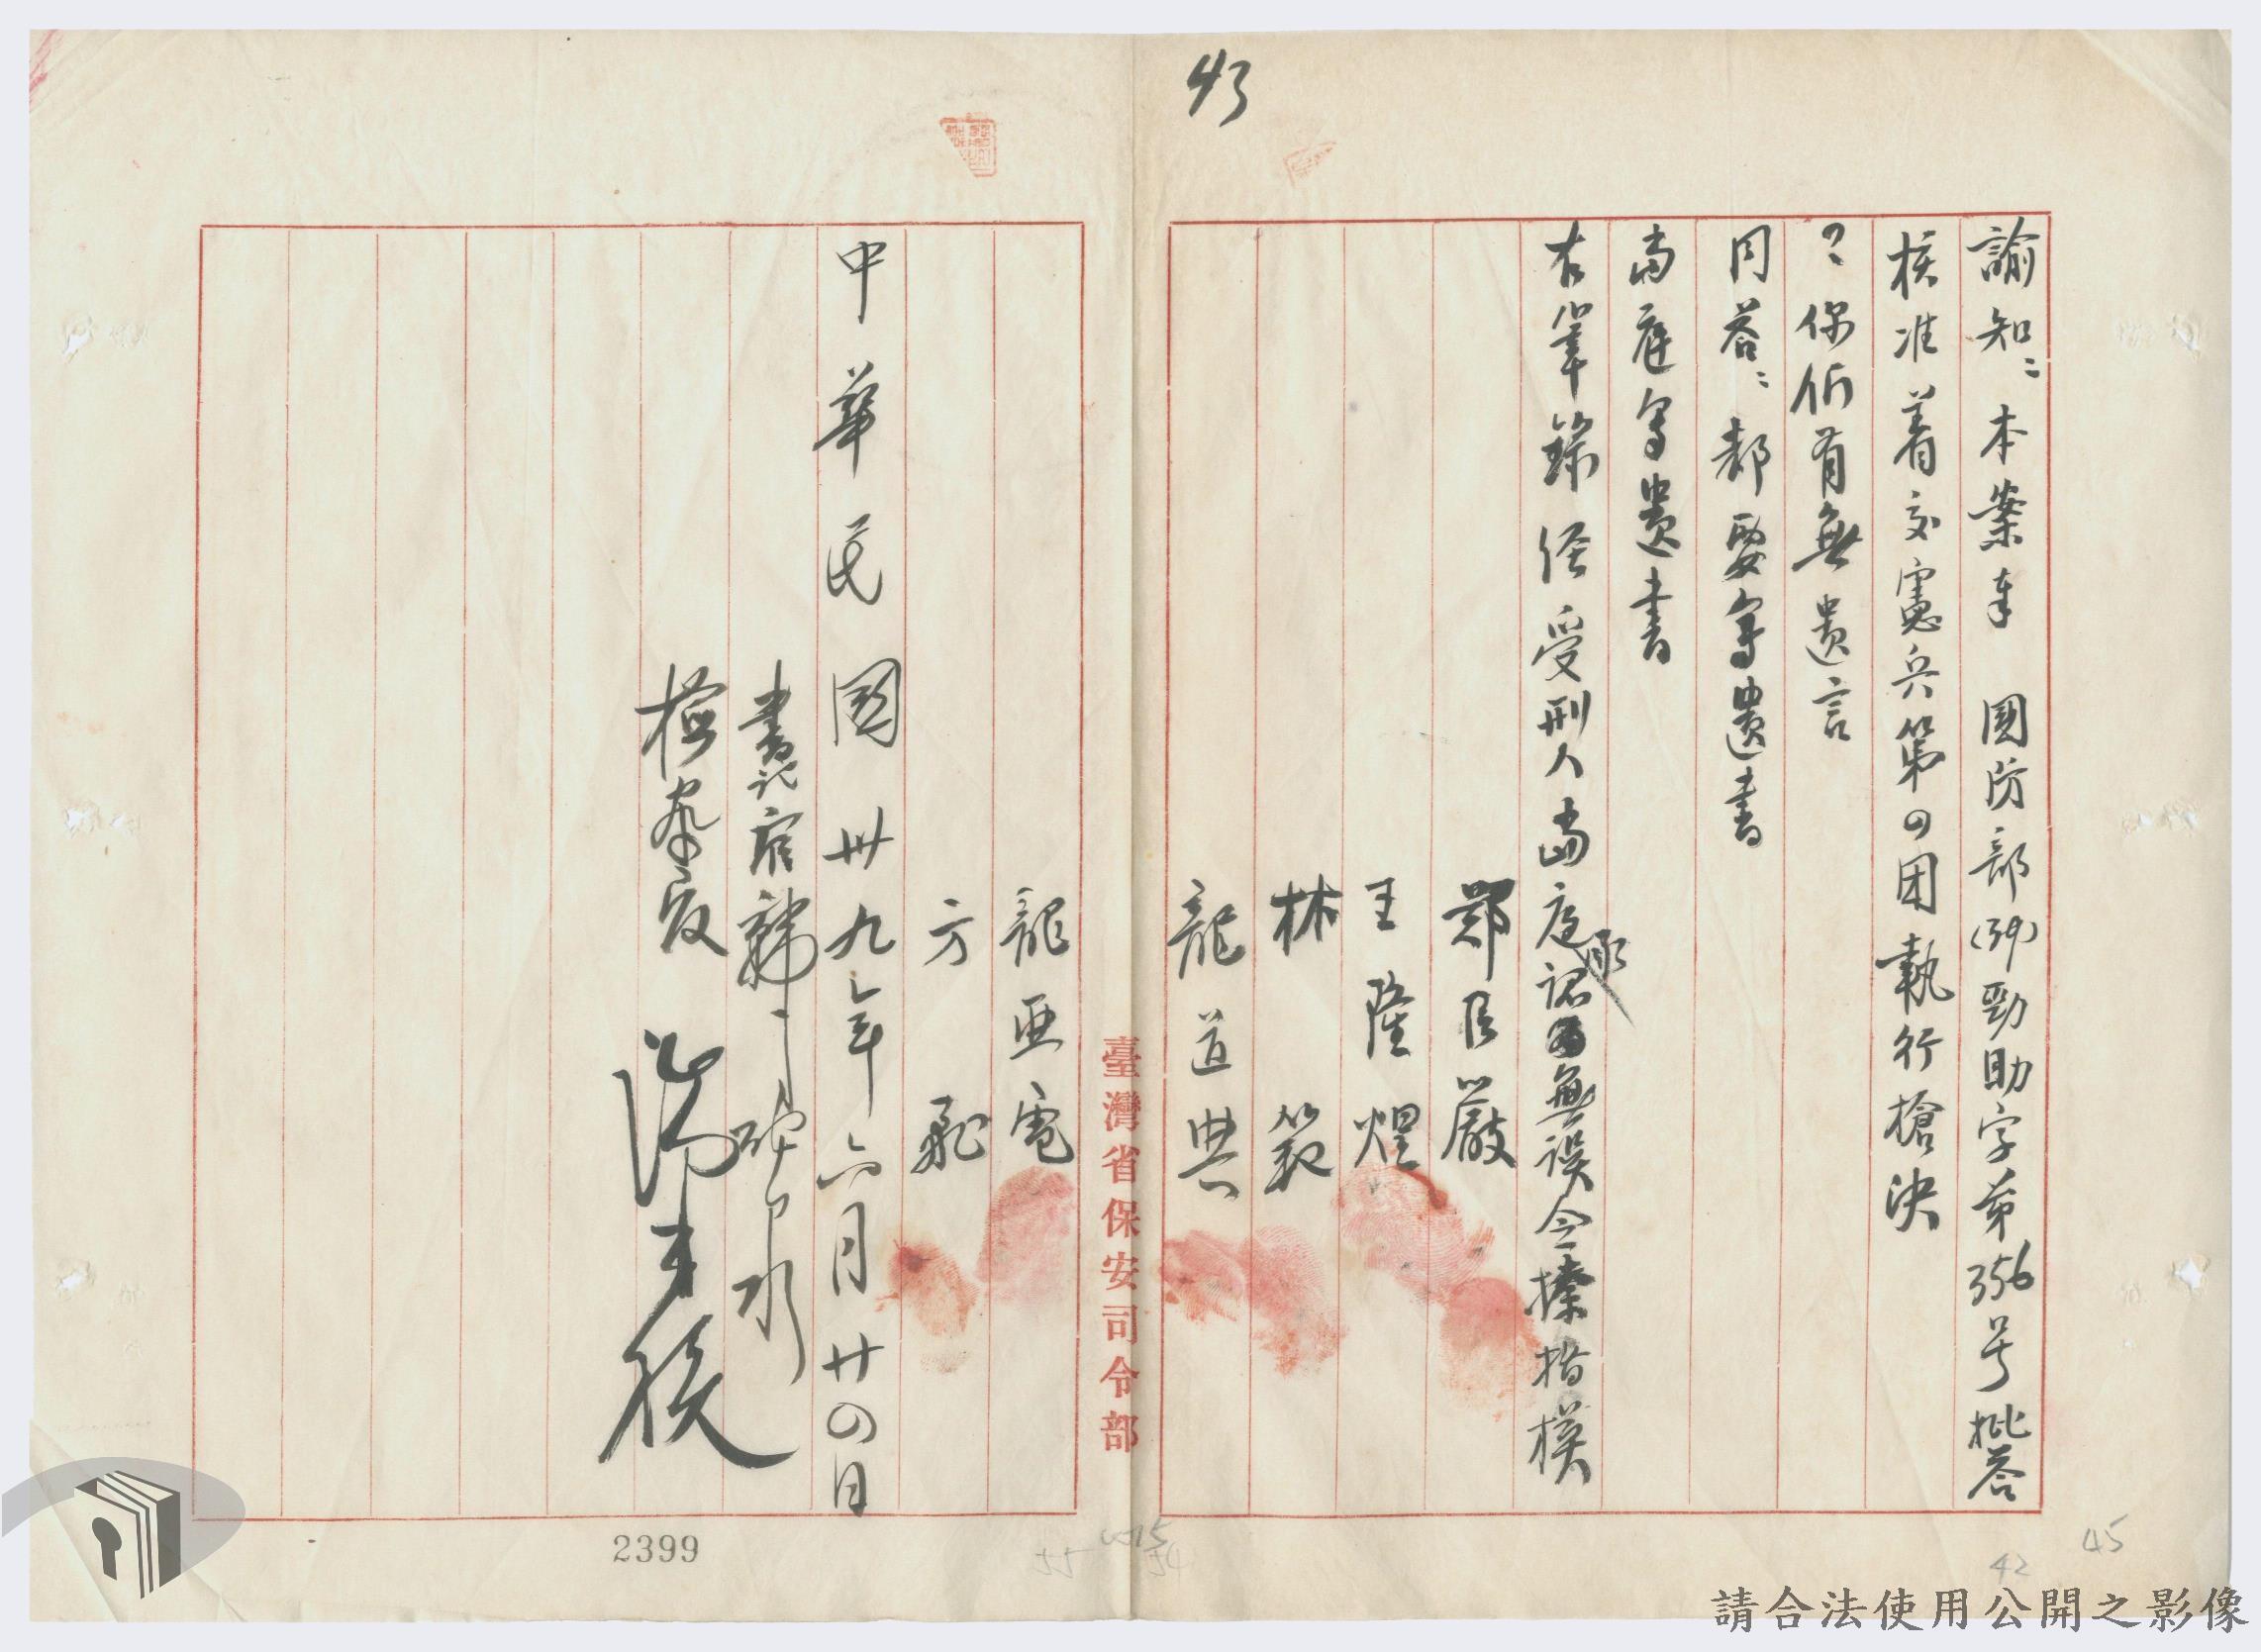 43
諭知:本案奉 國防部(39)勁助字第356号批答
核准着交憲兵第四团執行槍決
:你們有無遺言
同答:都要寫遺書
當庭寫遺書
右筆錄經受刑人當庭承認無誤令捺指模
鄭臣嚴
王陸煜
林範
龍道典
臺灣省保安司令部
龍亜電
方
中華民國卅九年六月廿四日
書記官
檢察官
2399
45
42
54
55
請合法使用公開之影像